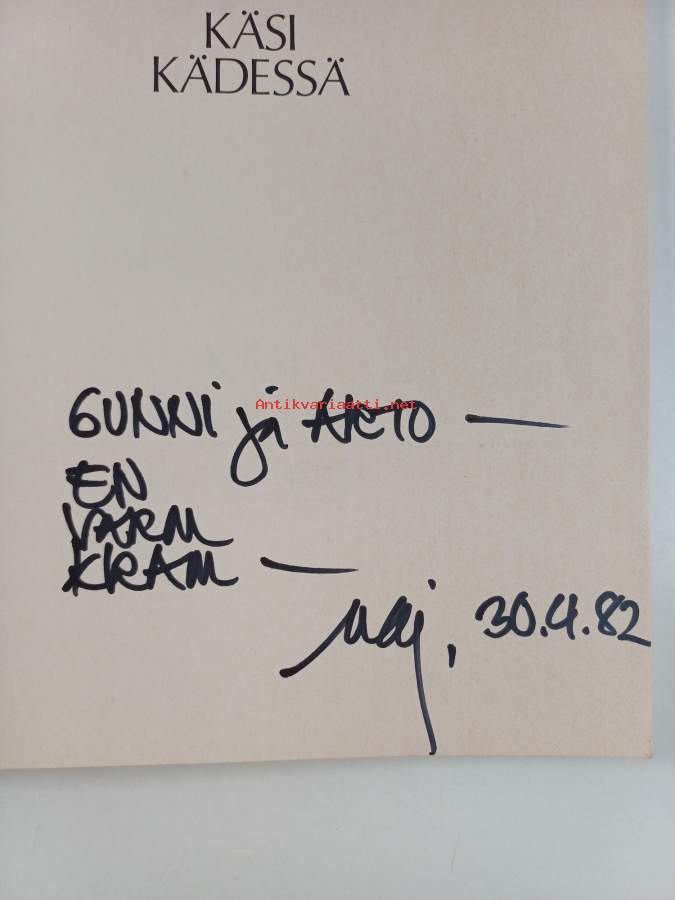 KÄSI
KÄDESSÄ
GUNNI ja ARTO —
Antikvariaatti.net
EN
VARM
KRAM —
Maj, 30.4.82